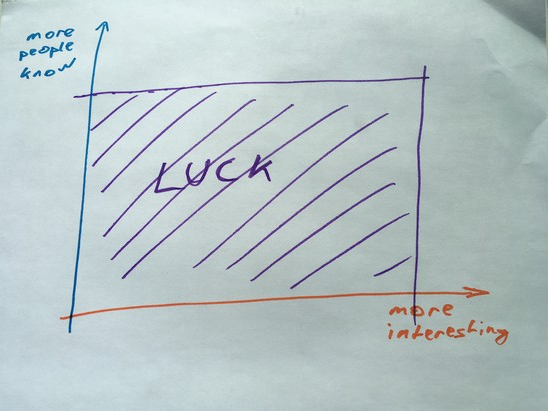 more
people
know
LUCK
more
interesting